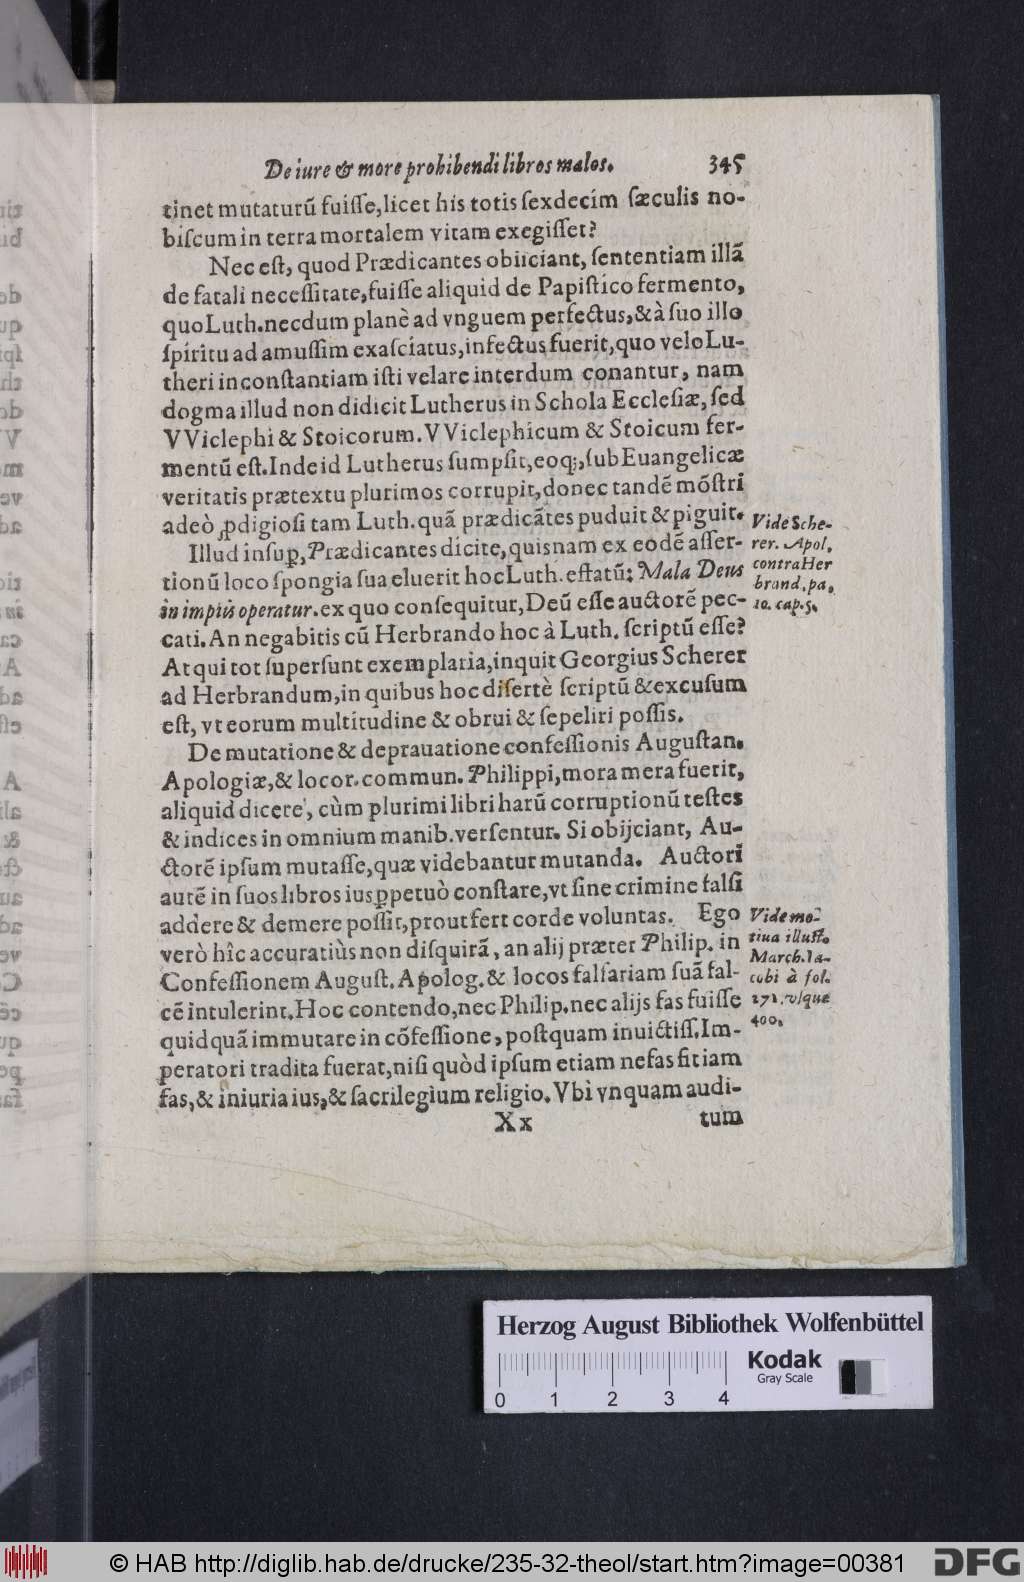 De iure & more prohibendi libros malos. 345
tinet mutaturũ fuiſſe, licet his totis ſexdecim ſæculis no-
biſcum in terra mortalem vitam exegiſſet?
Nec eſt, quod Prædicantes obiiciant, ſententiam illã
de fatali neceſſitate, fuiſſe aliquid de Papiſtico fermento,
quo Luth. necdum planè ad vnguem perfectus, & à ſuo illo
ſpiritu ad amuſſim exaſciatus, infectus fuerit, quo velo Lu-
theri inconſtantiam iſti velare interdum conantur, nam
dogma illud non didicit Lutherus in Schola Eccleſiæ, ſed
VViclephi & Stoicorum. VViclephicum & Stoicum fer-
mentũ eſt. Inde id Lutherus ſumpſit, eoq;, ſub Euangelicæ
veritatis prætextu plurimos corrupit, donec tandẽ mõſtri
adeò ꝓdigioſi tam Luth. quã prædicãtes puduit & piguit.
Illud inſuꝑ, Prædicantes dicite, quisnam ex eodẽ aſſer-
tionũ loco ſpongia ſua eluerit hoc Luth. eſtatũ: Mala Deus
in impiis operatur. ex quo conſequitur, Deũ eſſe auctorẽ pec-
cati. An negabitis cũ Herbrando hoc à Luth. ſcriptũ eſſe?
Atqui tot ſuperſunt exemplaria, inquit Georgius Scherer
ad Herbrandum, in quibus hoc diſertè ſcriptũ & excuſum
eſt, vt eorum multitudine & obrui & ſepeliri poſſis.
Vide Sche-
rer. Apol.
contra Her
brand. pa.
10. cap. 5.
De mutatione & deprauatione confeſſionis Auguſtan.
Apologiæ, & locor. commun. Philippi, mora mera fuerit,
aliquid dicere, cùm plurimi libri harũ corruptionũ teſtes
& indices in omnium manib. verſentur. Si obijciant, Au-
ctorẽ ipſum mutaſſe, quæ videbantur mutanda. Auctori
autẽ in ſuos libros ius ꝑpetuò conſtare, vt ſine crimine falſi
addere & demere poſſit, prout fert corde voluntas. Ego
verò hîc accuratiùs non diſquirã, an alij præter Philip. in
Confeſſionem Auguſt. Apolog. & locos falſariam ſuã fal-
cẽ intulerint. Hoc contendo, nec Philip. nec alijs fas fuiſſe
quidquã immutare in cõfeſſione, poſtquam inuictiſſ. Im-
peratori tradita fuerat, niſi quòd ipſum etiam nefas fit iam
fas, & iniuria ius, & ſacrilegium religio. Vbi vnquam audi-
Vide mo-
tiua illuſt.
March. Ia-
cobi à fol.
271. vſque
400.
Xx tum
Herzog August Bibliothek Wolfenbüttel
Kodak
Gray Scale
0 1 2 3 4
© HAB http://diglib.hab.de/drucke/235-32-theol/start.htm?image=00381
DFG